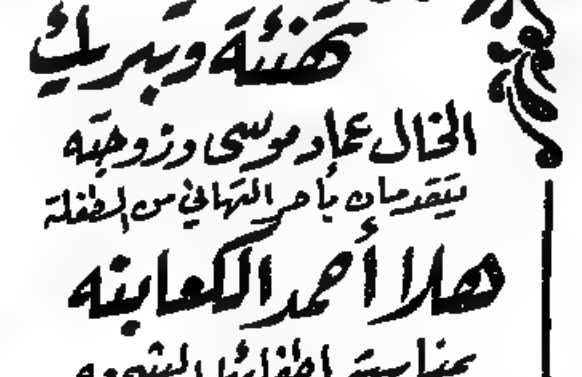 تهنئة وتبريك
الخال عماد موسى وزوجته
يتقدمان بأحر التهاني من الطفلة
هلا أحمد الكعابنه
بمناسبة اطفائها الشمعه